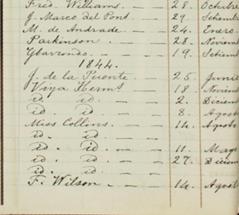 Fred. Williams. — 28. Octubre
J. Marco del Pont. 29. Setiem
M. de Andrade — 24. Enero
Parkinson — 28. Noviem
Ybarrondo. — 19. Setiem
1844.
J. de la Puente — 25. Junio
Viya Hermˢ — 18 Noviem
id id. — 2. Diciem
id id. — 8. Agost
Miss Collins. — 14. Agost
id. id.
id. id. — 11. Mayo
id. id. — 27. Diciem
id. id.
F. Wilson — 14. Agost